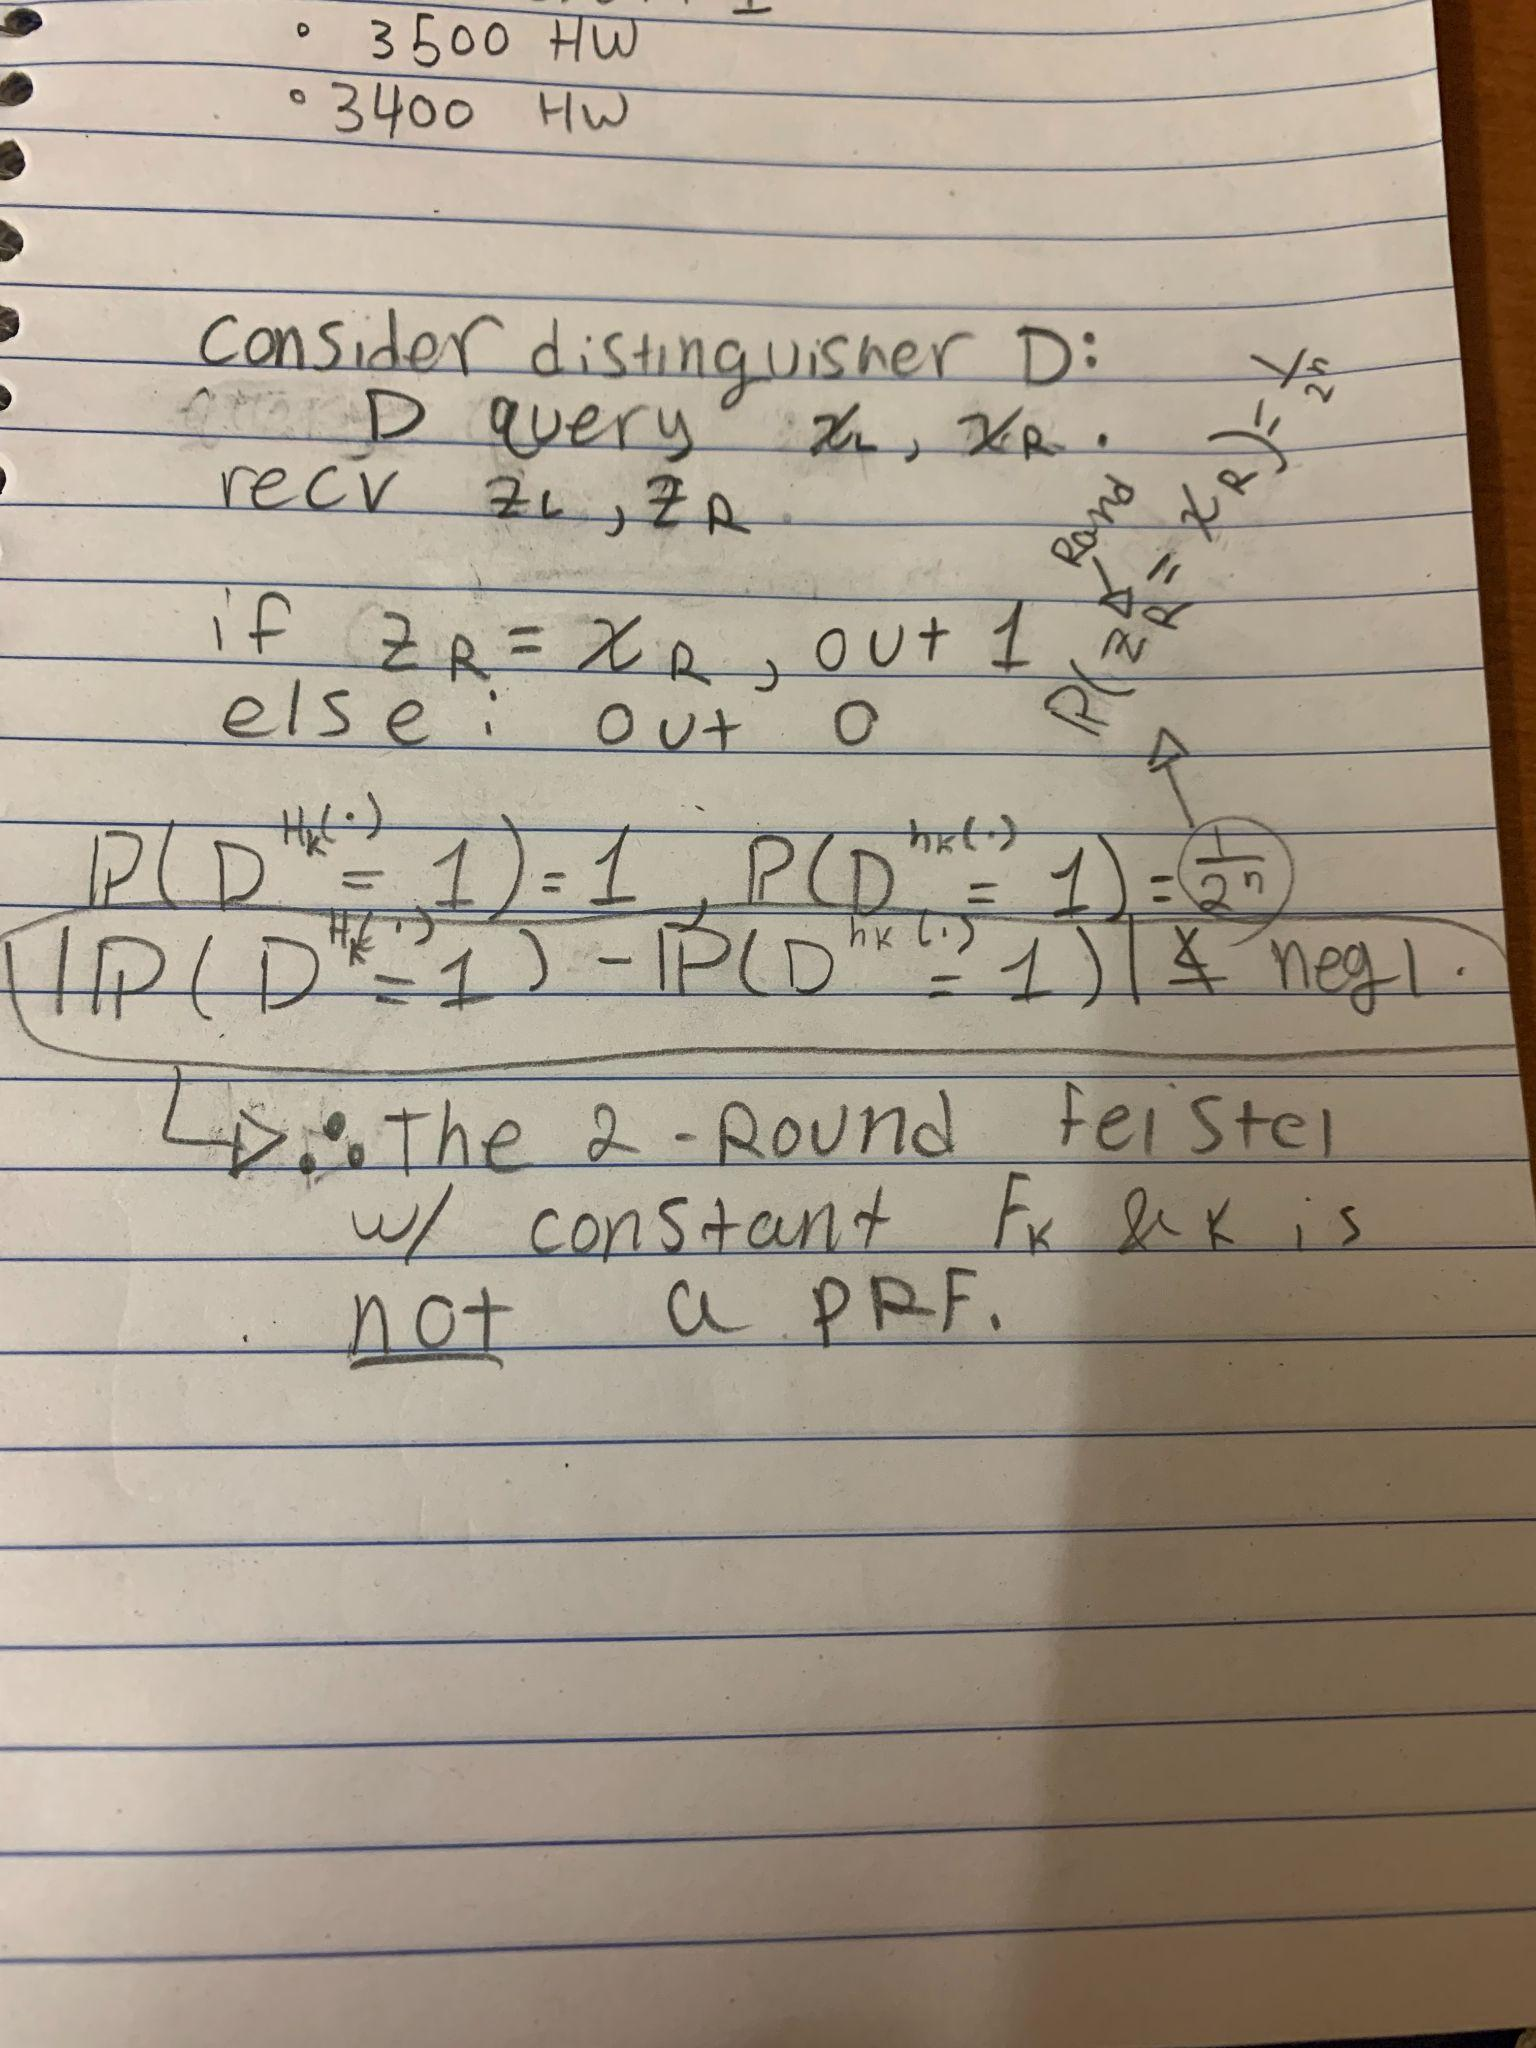 • 3500 HW
• 3400 HW
Consider distinguisher D:
D query x_L, x_R.
recv z_L, z_R
if z_R = x_R, out 1
else: out 0
Rand
P(z_R = x_R) = 1/2^n
ℙ(D^{H_k(·)} = 1) = 1, ℙ(D^{h_k(·)} = 1) = 1/2^n
|ℙ(D^{H_k(·)} = 1) - ℙ(D^{h_k(·)} = 1)| ≰ negl.
∴ The 2-Round Feistel
w/ constant F_K & K is
not a PRF.